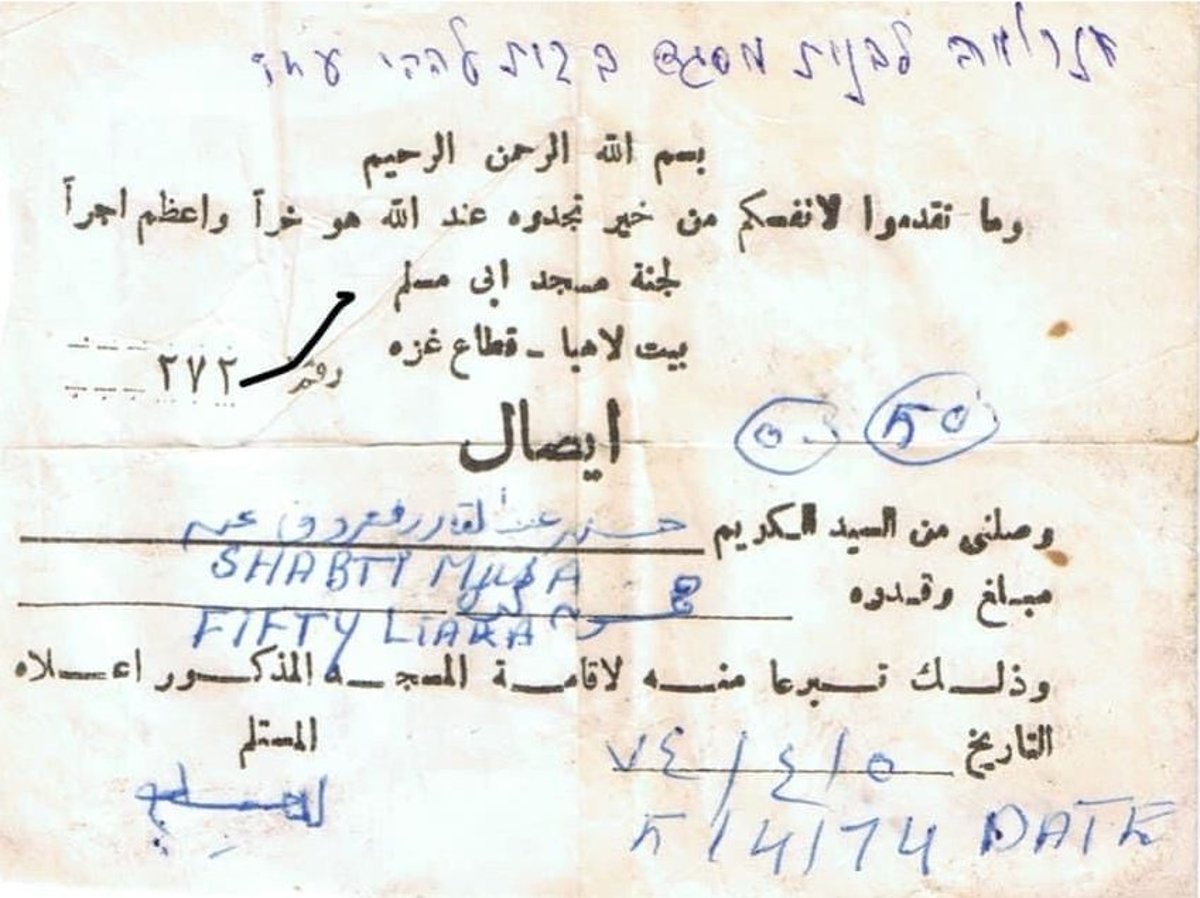 לבנית מסגד בבית לההי עזה
بسم الله الرحمن الرحيم
وما تقدموا لانفسكم من خير تجدوه عند الله هو خراً واعظم اجراً
لجنة مسجد ابى مسلم
بيت لاهيا - قطاع غزه
رقم ٢٧٢
ايصال
٥٠
وصلنى من السيد الكريم
SHABTY MUSA
مبلغ وقدوه
FIFTY LIARA
وذلك تبرعا منه لاقامة المسجد المذكور اعلاه
التاريخ ٥/٤/٧٤
المستلم
5/4/74 DATE